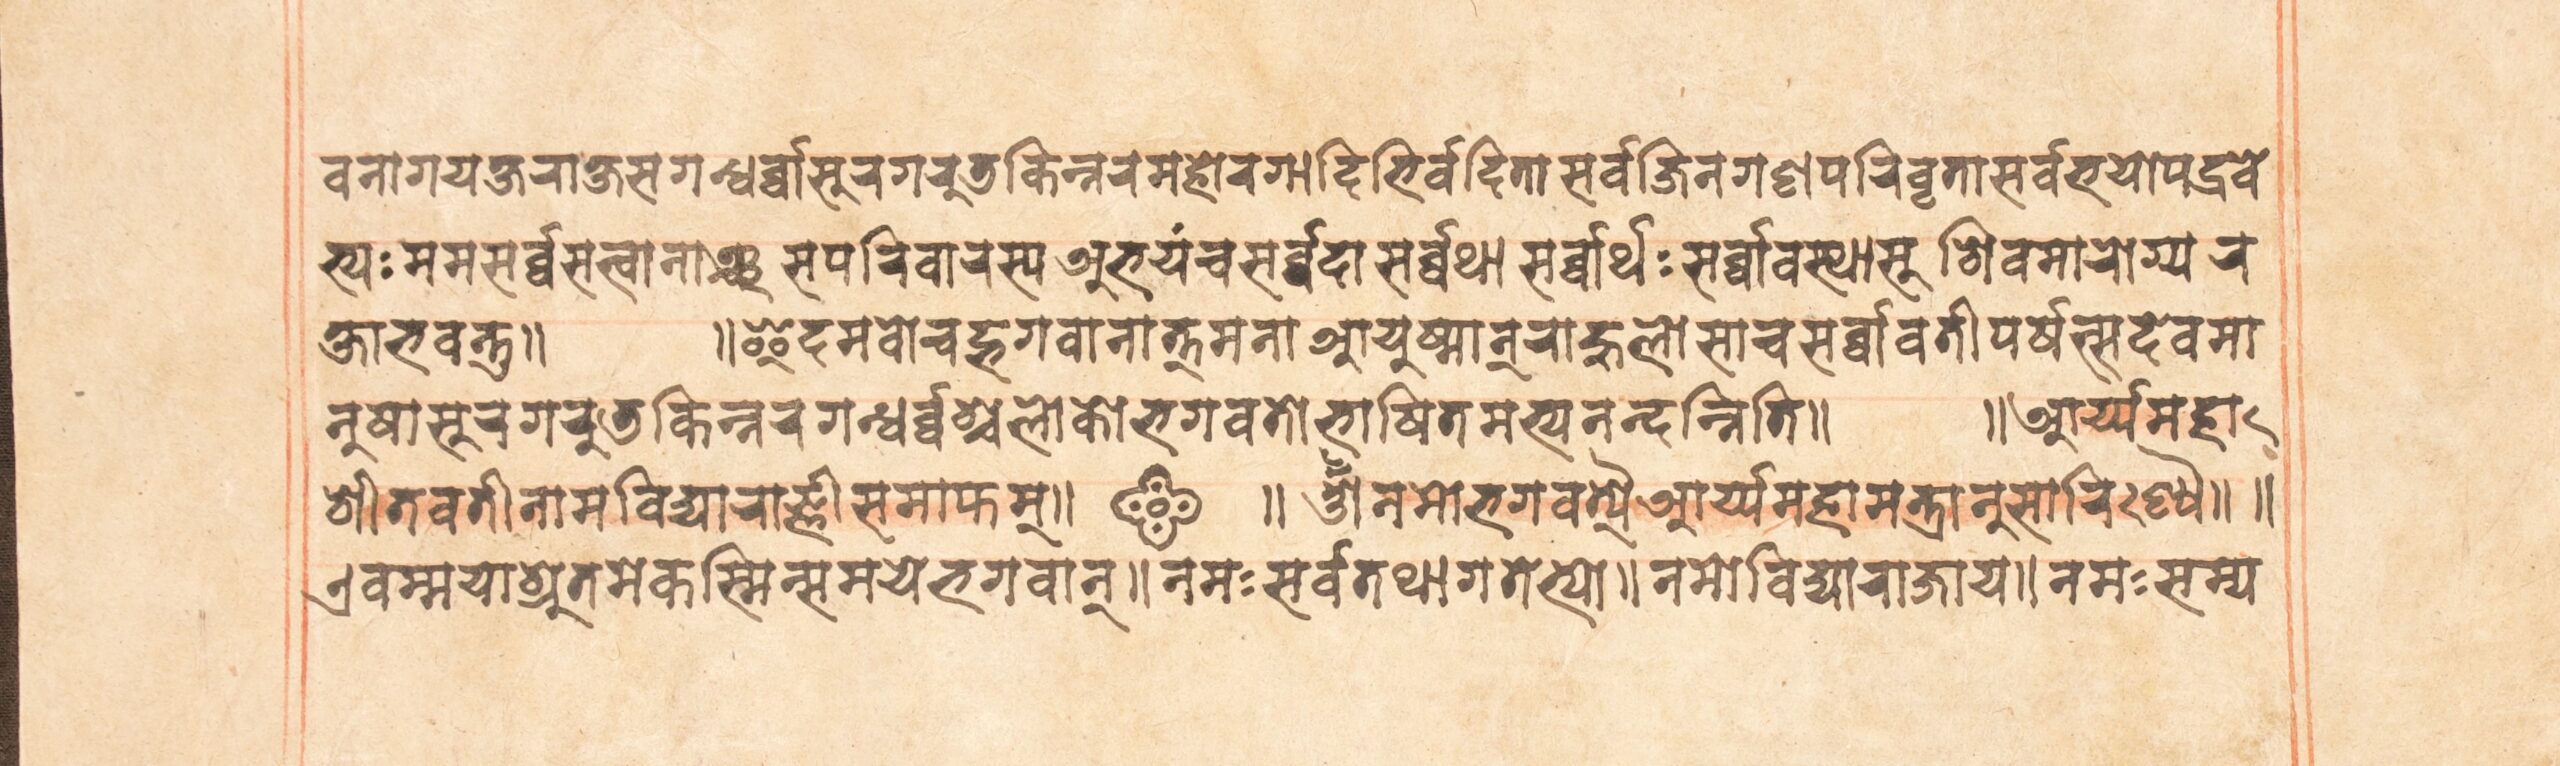 वनागयक्षराक्षसगन्धर्व्वासूरगरुडकिन्नरमहोरगादिभिर्वदितासर्वजिनगणपरिवृतासर्वभयोपद्रवे
भ्यः ममसर्व्वसत्वानाञ्च सपरिवारस्य अभयंचसर्व्वदा सर्व्वथा सर्व्वार्थः सर्व्वावस्थासू शिवमारोग्य र
क्षाभवन्तु॥ ॥इदमवोचद्भगवानात्तमना आयुष्मान्राहुलो साचसर्व्वावतीपर्षत्सदेवमा
नुषासूरगरुडकिन्नरगन्धर्व्वश्चलोको भगवतो भाषितमभ्यनन्दन्निति॥ ॥आर्य्यमहा
शीतवतीनामविद्याराज्ञीसमाप्तम्॥ ॥ ॐ नमोभगवत्यै आर्य्यमहामन्त्रानुसारिण्यै॥ ॥
एवम्मयाश्रुतमेकस्मिन्समये भगवान्॥ नमः सर्वतथागतेभ्यो॥ नमो विद्याराजाय॥ नमः सम्य